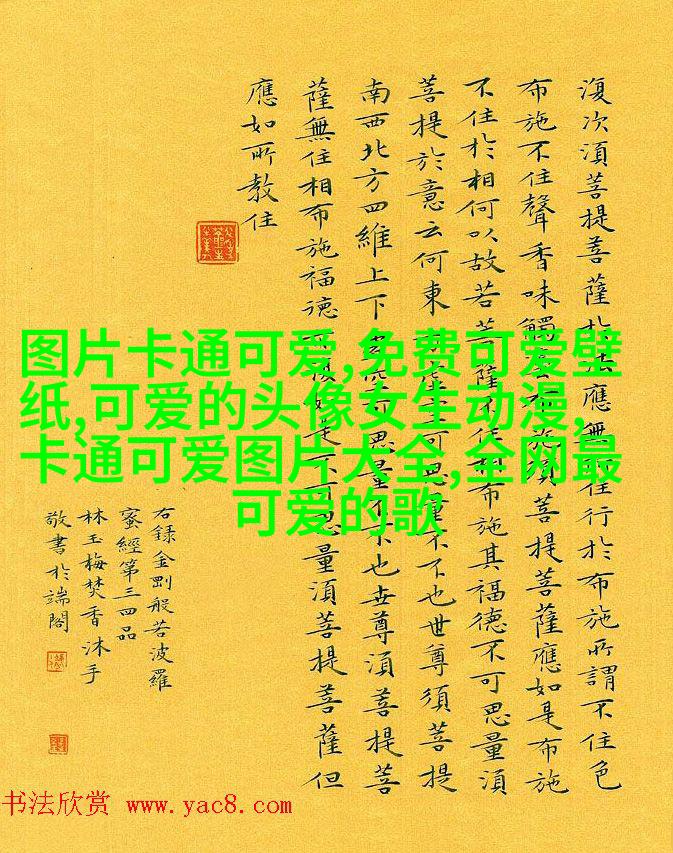 復次湏菩提菩薩於法應無所住行於布施所謂不住色
布施不住聲香味觸法布施湏菩提菩薩應如是布施
不住於相何以故若菩薩不住相布施其福德不可思量湏
菩提於意云何東方虛空可思量不不也世尊須菩提
南西北方四維上下虛空可思量不不也世尊湏菩提菩
薩無住相布施福德亦復如是不可思量湏菩提菩薩但
應如所教住
右錄金剛般若波羅
蜜經第三四品
林玉梅焚香沐手
敬書於端閣
图片卡通可爱,免费可爱壁
纸,可爱的头像女生动漫,
卡通可爱图片大全,全网最
可爱的歌
书法欣赏 www.yac8.com